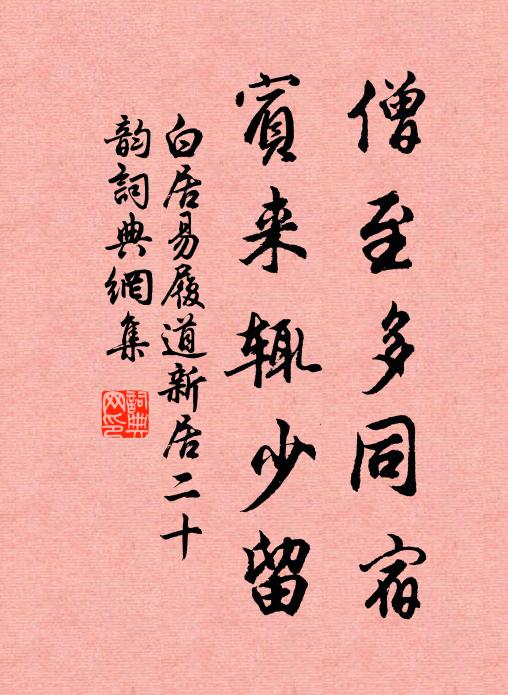 僧至多同宿
賓来辄少留
白居易履道新居二十
韵詞典網集
詞典
网印